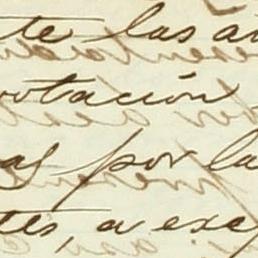 te las a
rotación
as por la
tes, a exc